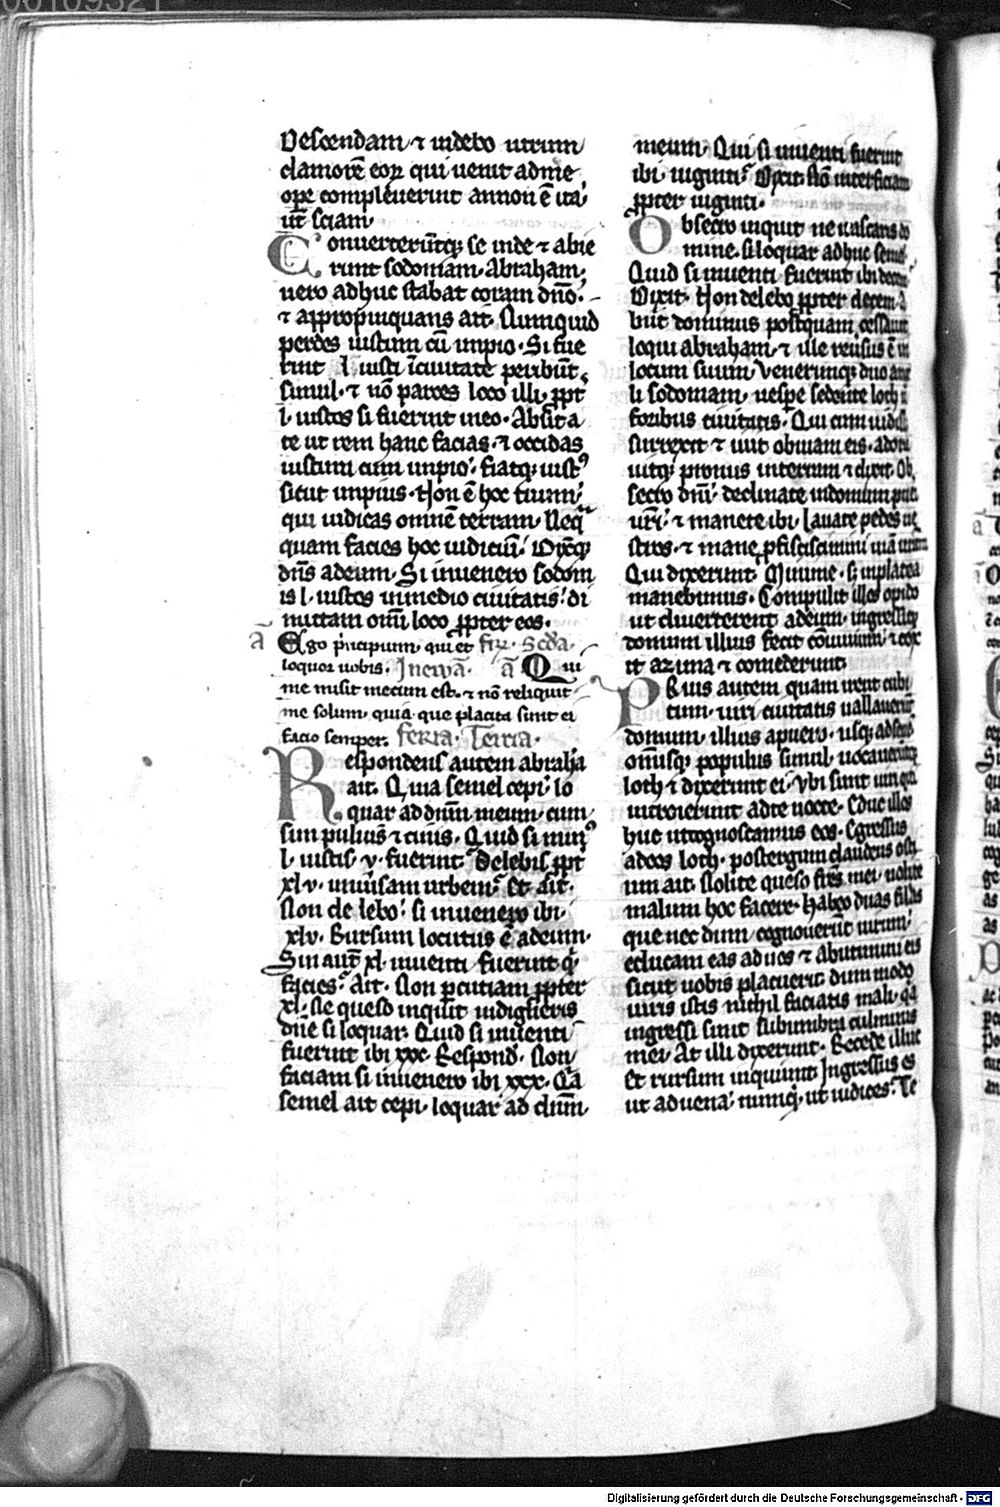 Descendam ⁊ uidebo utrum
clamorē eoꝝ qui uenit adme
oꝑe compleuerint annon ē ita
ut sciam
Conuerterūtqꝫ se inde ⁊ abie
runt sodomam. Abraham
uero adhuc stabat coram dn̄o.
⁊ appropinquans ait. Numquid
perdes iustum cū impio. Si fue
rint l iusti īciuitate peribūt
simul. ⁊ nō parces loco illi ꝓpt
l. iustos si fuerint ineo. Absit a
te ut rem hanc facias. ⁊ occidas
iustum cum impio. fiatqꝫ iustꝰ
sicut impius. Non ē hoc tuum
qui iudicas omnē terram. Neq
quam facies hoc iudiciū. Dixitqꝫ
dn̄s adeum. Si inuenero sodom
is l. iustos inmedio ciuitatis. di
mittam omī loco ꝓpter eos.
a Ego pͥncipium. qui et fr̄. Scd̄a.
loquor uobis. Ineuā. a Qui
me misit mecum est. ⁊ nō reliquit
me solum. quia que placita sunt ei
facio semper. feria. Tercia.
Respondens autem abrahā
ait. Quia semel cepi. lo
quar ad dn̄m meum. cum
sim puluis ⁊ cinis. Quid si minꝰ
l. iustis v. fuerint. Delebis ꝓpt
xlv. uniūsam urbem. Et ait.
Non de lebo. si inuenero ibi
xlv. Rursum locutus ē adeum.
Sin aut xl. inuenti fuerint q
facies. Ait. Non ꝑcutiam ꝓpter
xl. Ne queso inquit indigneris
dn̄e si loquar. Quid si inuenti
fuerint ibi xxx. Respond. Non
faciam si inuenero ibi xxx. Qa
semel ait cepi. loquar ad dn̄m
meum. Qui si inuenti fuerint
ibi uiginti. Dixit. Nō interficiam
ꝓpter uiginti.
Obsecro inquit ne irascaris do
mine. si loquar adhuc semel
Quid si inuenti fuerint ibi decem
Dixit. Non delebo ꝓpter decem. a
biit dominus postquam cessauit
loqui abraham. ⁊ ille reūsus ē in
locum suum. Veneruntqꝫ duo ange
li sodomam. uesꝑe sedente loth i
foribus ciuitatis. Qui cum uidiss
surrexit ⁊ iuit obuiam eis. adora
uitqꝫ pronus interram ⁊ dixit. Ob
secro dn̄i declinate indomum pueri
uri. ⁊ manete ibi. Lauate pedes ue
stros. ⁊ mane ꝓficiscimini uiā urām
Qui dixerunt. Minime. sꝫ inplatea
manebimus. Compulit illos opido
ut diuerterent adeum. ingressisqꝫ
domum illius fecit cōuiuium. ⁊ cox
it azima ⁊ comederunt.
Prius autem quam irent cubi
tum. uiri ciuitatis uallauerūt
domum illius apuero. usqꝫ adsenē
omīsqꝫ populus simul. uocauerūtqꝫ
loth ⁊ dixerunt ei. Vbi sunt uiri qui
introierunt adte nocte. Educ illos
huc utcognoscamus eos. Egressus
adeos loth. postergum claudens osti
um ait. Nolite queso fr̄s mei. nolite
malum hoc facere. habeo duas filias
que nec dum cognouerūt uirum.
educam eas aduos ⁊ abutimini eis
sicut uobis placuerit. dum modo
uiris istis nichil faciatis mali. qa
ingressi sunt subumbra culminis
mei. At illi dixerunt. Recede illuc
Et rursum inquiunt Ingressus es
ut aduena. numqꝫ ut iudices. Te
Digitalisierung gefördert durch die Deutsche Forschungsgemeinschaft - DFG